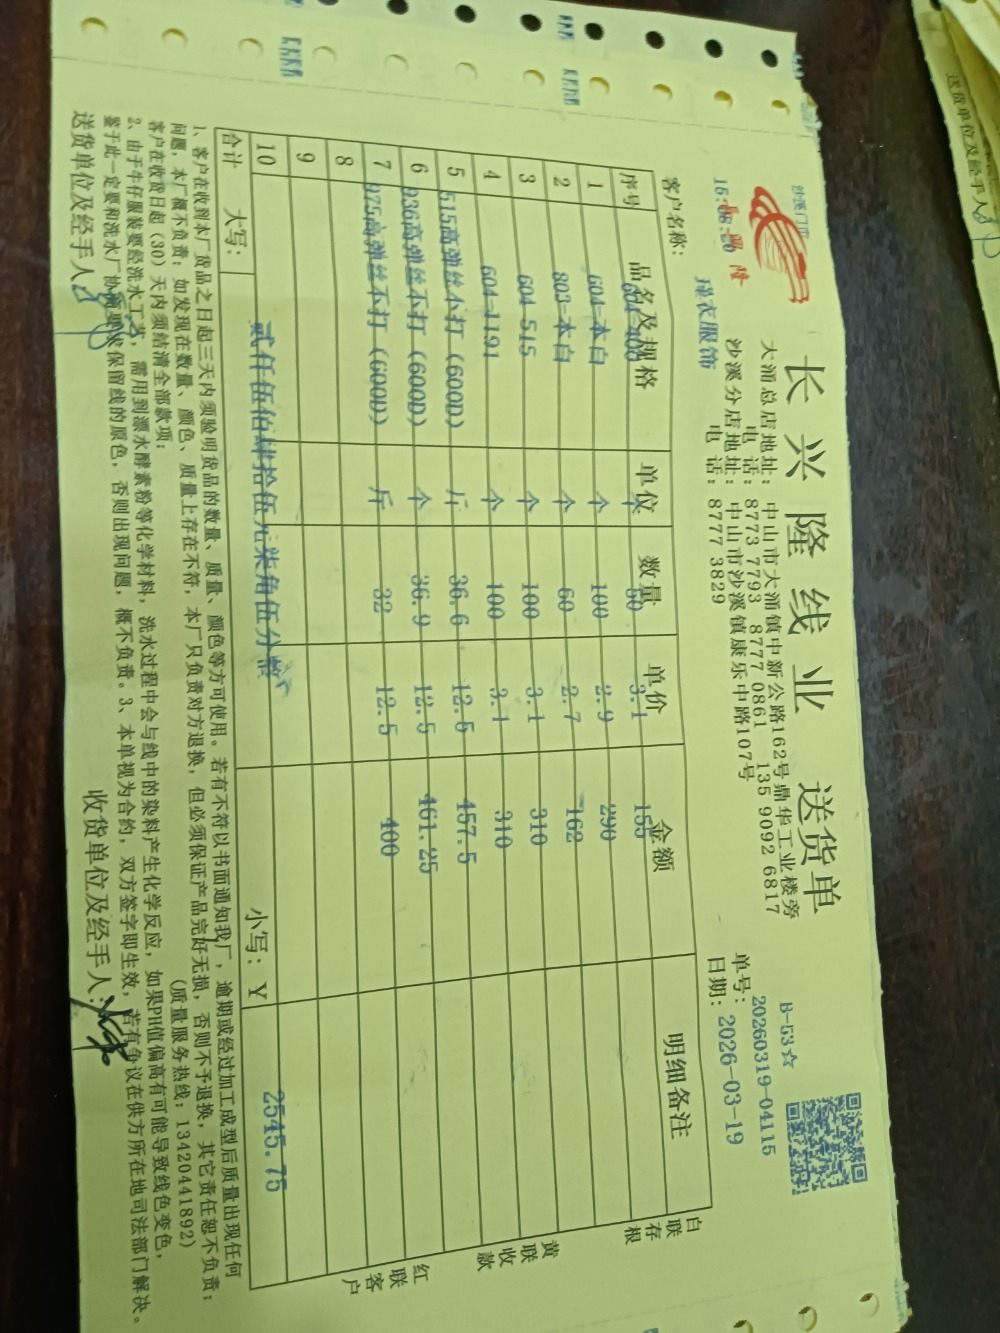 长兴隆线业 送货单
沙溪门市
B-53☆
大涌总店地址: 中山市大涌镇中新公路162号鼎华工业楼旁
电 话: 8773 7793 8777 0861 135 9092 6817
沙溪分店地址: 中山市沙溪镇康乐中路107号
电 话: 8777 3829
单号: 20260319-04115
日期: 2026-03-19
客户名称: 瑾衣服饰
序号 品名及规格 单位 数量 单价 金额 明细备注
604=408 个 50 3.1 155
1 604=本白 个 100 2.9 290
2 803=本白 个 60 2.7 162
3 604 515 个 100 3.1 310
4 604=1191 个 100 3.1 310
5 515高弹丝不打 (600D) 斤 36.6 12.5 457.5
6 936高弹丝不打 (600D) 个 36.9 12.5 461.25
7 975高弹丝不打 (600D) 斤 32 12.5 400
8
9
10
合计 大写: 贰仟伍佰肆拾伍元柒角伍分整 小写: Y 2545.75
白联存根
黄联收款
红联客户
1、客户在收到本厂货品之日起三天内须验明货品的数量、质量、颜色等方可使用。若有不符以书面通知我厂, 逾期或经过加工成型后质量出现任何
问题, 本厂概不负责; 如发现在数量、颜色、质量上存在不符, 本厂只负责对方退换, 但必须保证产品完好无损, 否则不予退换, 其它责任恕不负责;
客户在收货日起 (30) 天内须结清全部款项; (质量服务热线: 13420441892)
2、由于牛仔服装要经洗水工艺, 需用到漂水酵素粉等化学材料, 洗水过程中会与线中的染料产生化学反应, 如果PH值偏高有可能导致线色变色,
鉴于此一定要和洗水厂协商要求保留线的原色, 否则出现问题, 概不负责。3、本单视为合约, 双方签字即生效, 若有争议在供方所在地司法部门解决。
送货单位及经手人: 收货单位及经手人:
送货单位及经手人